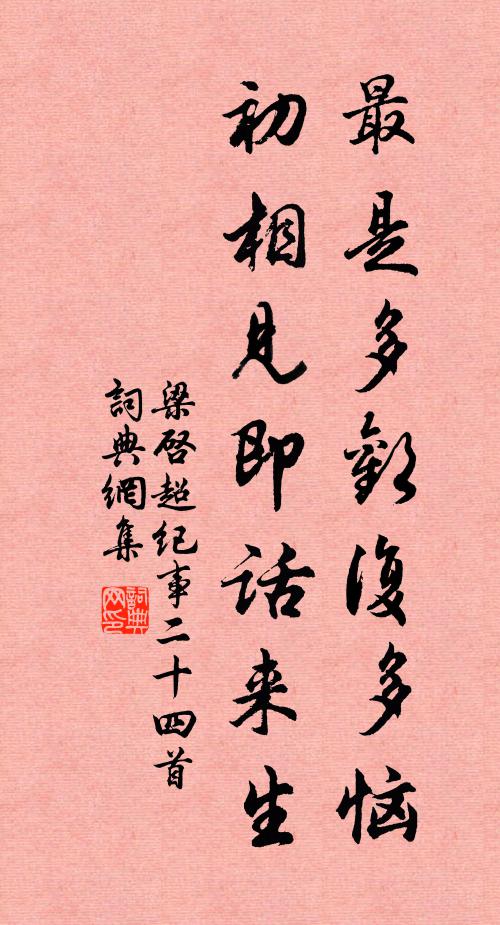 最是多歡復多恼
初相見即话来生
梁啓超纪事二十四首
詞典網集
詞典网印